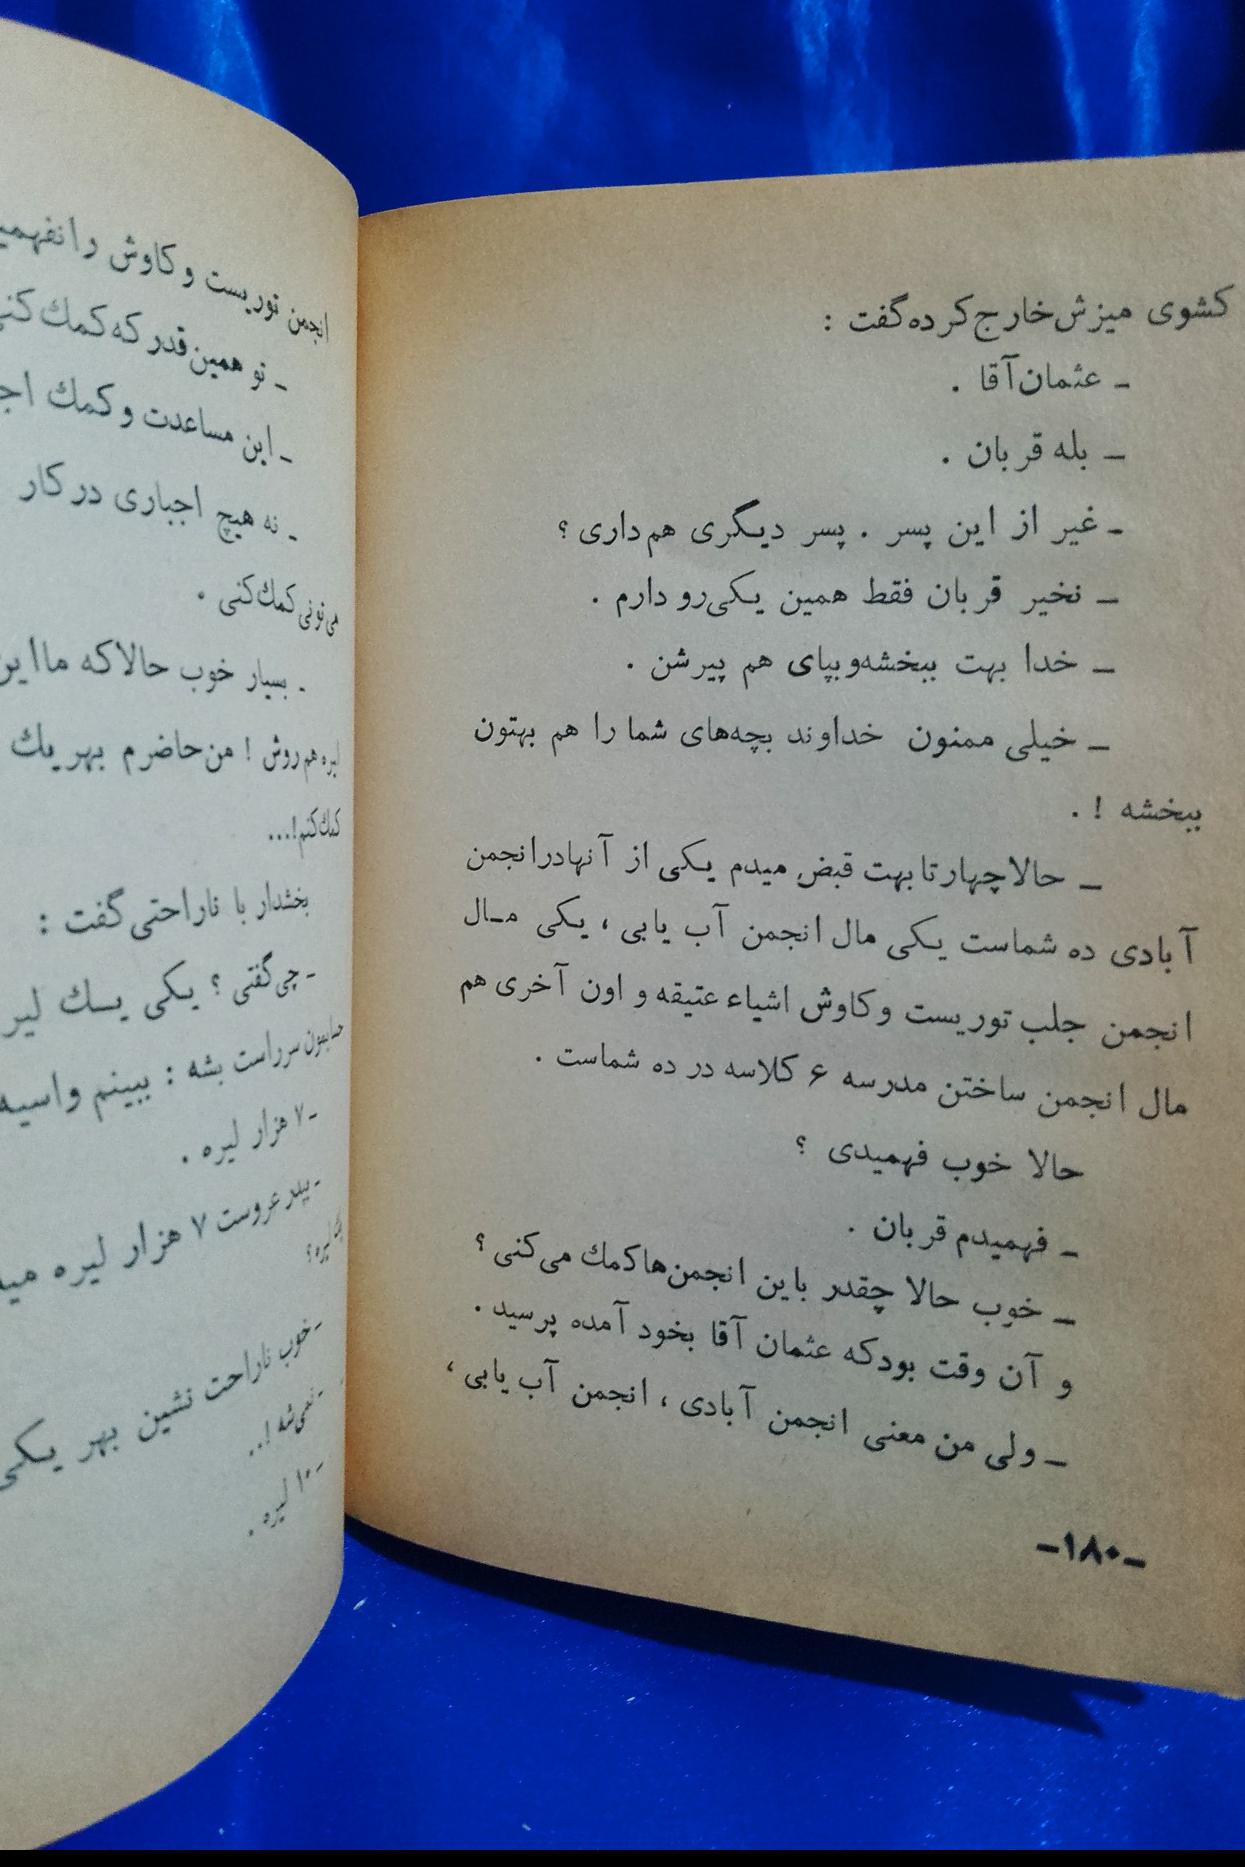 کشوی میزش خارج کرده گفت :
ـ عثمان آقا .
ـ بله قربان .
ـ غیر از این پسر . پسر دیگری هم داری ؟
ـ نخیر قربان فقط همین یکی‌رو دارم .
ـ خدا بهت ببخشه‌و بپای هم پیرشن .
ـ خیلی ممنون خداوند بچه‌های شما را هم بهتون
ببخشه ! .
ـ حالا چهارتا بهت قبض میدم یکی از آنهادرانجمن
آبادی ده شماست یکی مال انجمن آب یابی ، یکی مـال
انجمن جلب توریست و کاوش اشیاء عتیقه و اون آخری هم
مال انجمن ساختن مدرسه ۶ کلاسه در ده شماست .
حالا خوب فهمیدی ؟
ـ فهمیدم قربان .
ـ خوب حالا چقدر باین انجمن‌ها کمك می‌کنی ؟
و آن وقت بودکه عثمان آقا بخود آمده پرسید .
ـ ولی من معنی انجمن آبادی ، انجمن آب یابی ،
ـ۱۸۰ـ
انجمن توریست و کاوش را
ـ تو همین قدر که کمك
ـ این مساعدت و کمك
ـ نه هیچ اجباری در کار
می‌تونی کمك کنی .
ـ بسیار خوب حالا که ما
لیره هم روش ! من حاضرم بهر یك
کمك کنم !...
بخشدار با ناراحتی گفت :
ـ چی گفتی ؟ یکی یـك
حسابمون سرراست بشه : ببینم واسیه
ـ ۷ هزار لیره .
ـ پدر عروست ۷ هزار لیره
لیره ؟
ـ خوب ناراحت نشین بهر یکی
ـ نمی‌شه !..
ـ ۱۰ لیره .